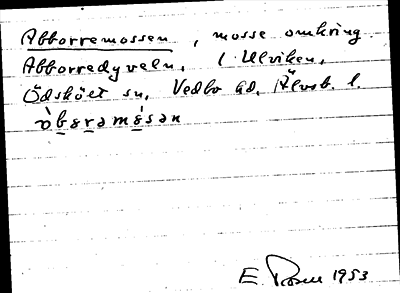 Abborremossen, mosse omkring
Abborredyveln, i Ulviken,
Ödskölt sn, Vedbo hd, Älvsb. l.
òbərəmósən
E. Rosell 1953